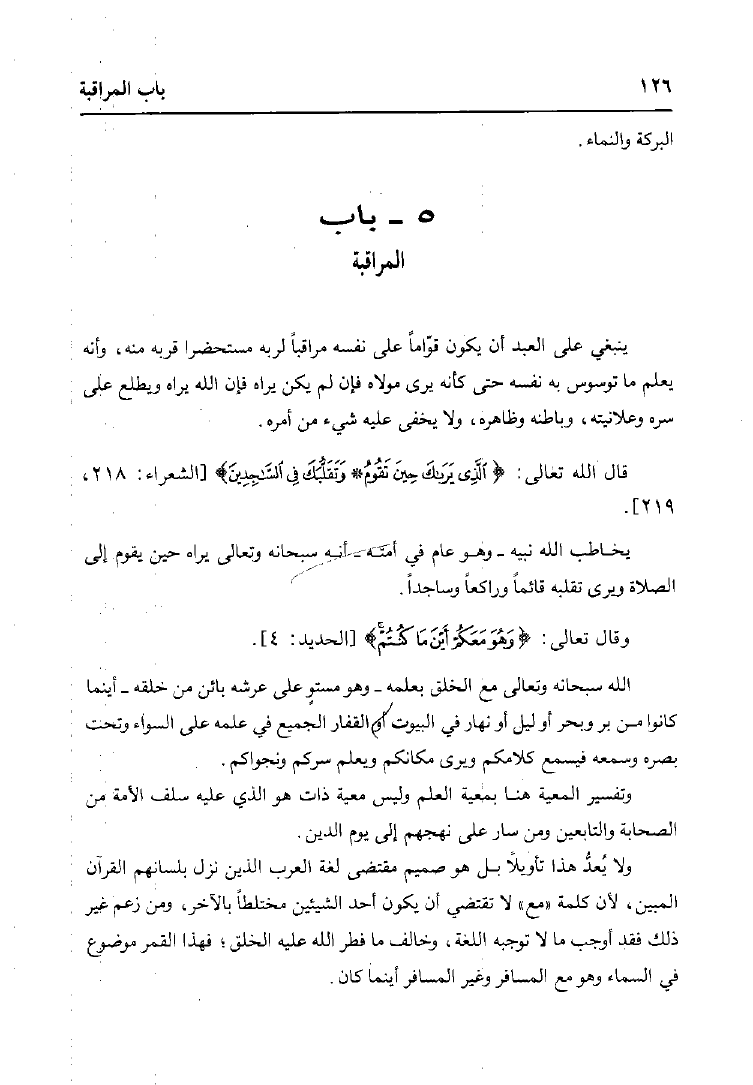 ١٢٦ باب المراقبة
البركة والنماء .
٥ ـ باب
المراقبة
ينبغي على العبد أن يكون قوّاماً على نفسه مراقباً لربه مستحضرا قربه منه، وأنه
يعلم ما توسوس به نفسه حتى كأنه يرى مولاه فإن لم يكن يراه فإن الله يراه ويطلع على
سره وعلانيته، وباطنه وظاهره، ولا يخفى عليه شيء من أمره.
قال الله تعالى: ﴿ ٱلَّذِى يَرَىٰكَ حِينَ تَقُومُ * وَتَقَلُّبَكَ فِى ٱلسَّٰجِدِينَ﴾ [الشعراء: ٢١٨،
٢١٩].
يخاطب الله نبيه ـ وهو عام في أمته ـ أنه سبحانه وتعالى يراه حين يقوم إلى
الصلاة ويرى تقلبه قائماً وراكعاً وساجداً.
وقال تعالى: ﴿ وَهُوَ مَعَكُمْ أَيْنَ مَا كُنتُمْ﴾ [الحديد: ٤].
الله سبحانه وتعالى مع الخلق بعلمه ـ وهو مستوٍ على عرشه بائن من خلقه ـ أينما
كانوا من بر وبحر أو ليل أو نهار في البيوت أو القفار الجميع في علمه على السواء وتحت
بصره وسمعه فيسمع كلامكم ويرى مكانكم ويعلم سركم ونجواكم .
وتفسير المعية هنا بمعية العلم وليس معية ذات هو الذي عليه سلف الأمة من
الصحابة والتابعين ومن سار على نهجهم إلى يوم الدين.
ولا يُعدُّ هذا تأويلاً بل هو صميم مقتضى لغة العرب الذين نزل بلسانهم القرآن
المبين، لأن كلمة «مع» لا تقتضي أن يكون أحد الشيئين مختلطاً بالآخر، ومن زعم غير
ذلك فقد أوجب ما لا توجبه اللغة، وخالف ما فطر الله عليه الخلق؛ فهذا القمر موضوع
في السماء وهو مع المسافر وغير المسافر أينما كان.